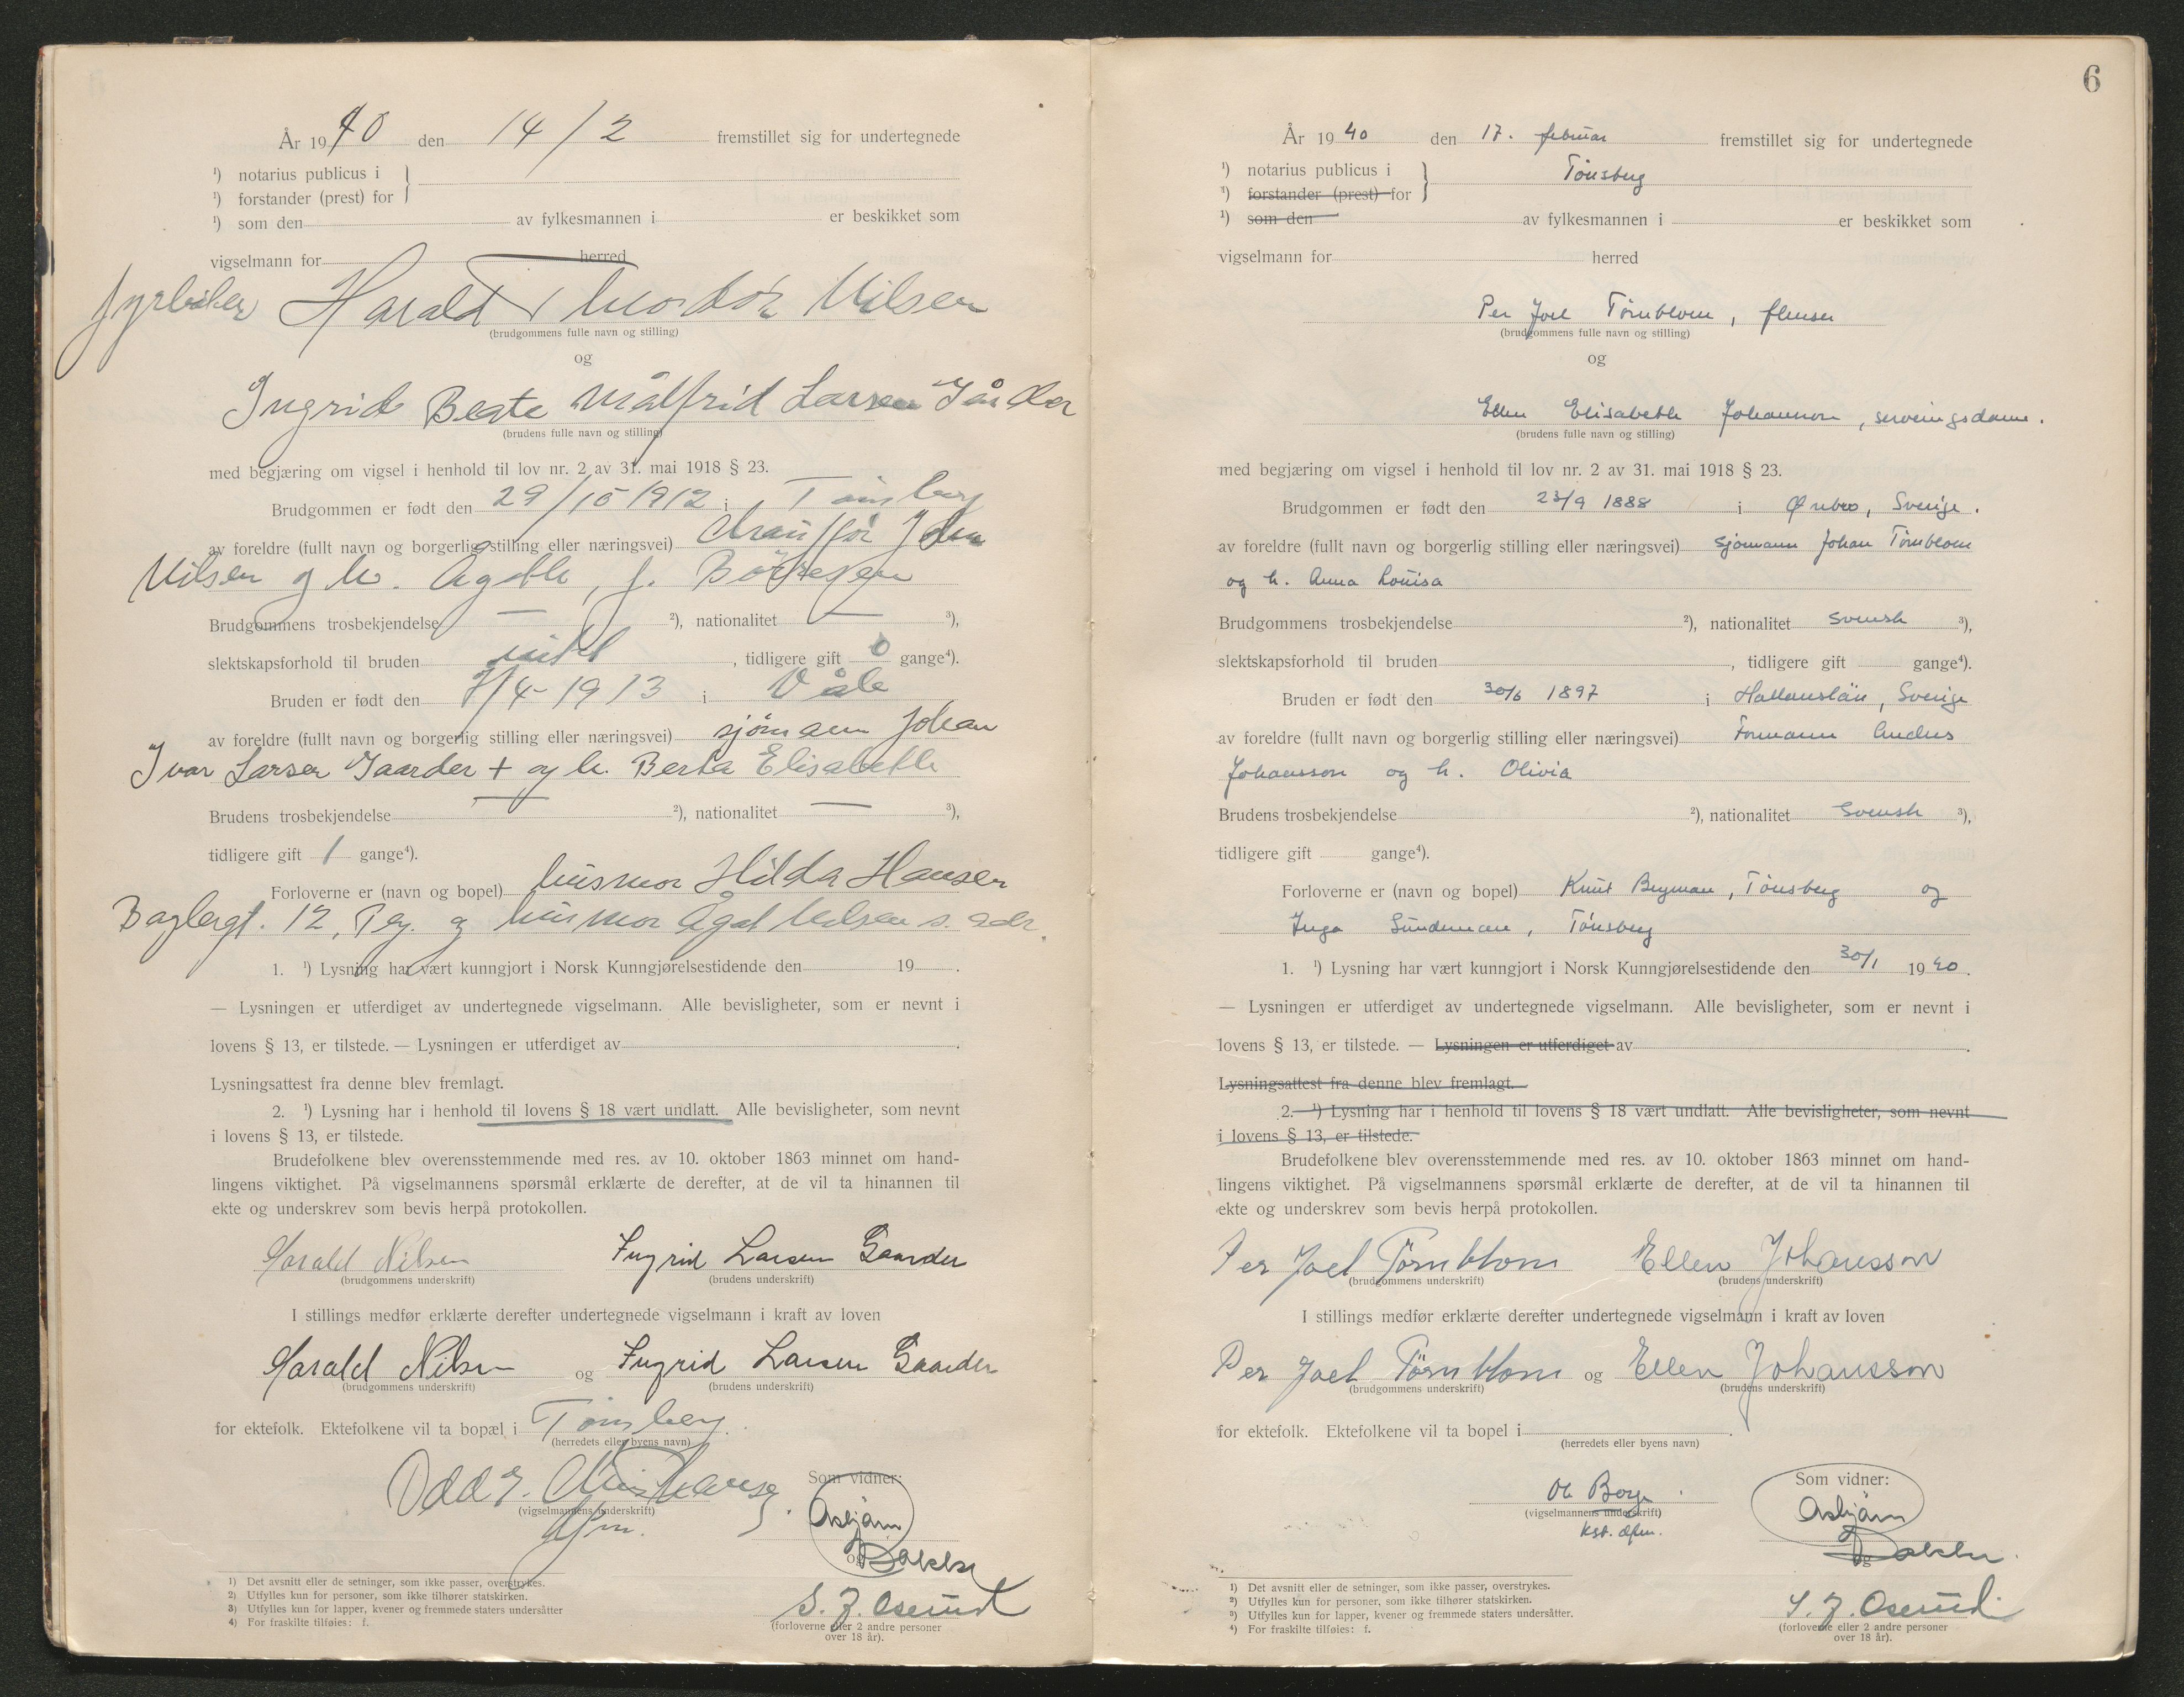 År 1940 den 14/2 fremstillet sig for undertegnede
¹) notarius publicus i
¹) forstander (prest) for
¹) som den av fylkesmannen i er beskikket som
vigselmann for herred
fyrbøter Harald Nilsen
(brudgommens fulle navn og stilling)
og
Ingrid Beate Målfrid Larsen Gårder
(brudens fulle navn og stilling)
med begjæring om vigsel i henhold til lov nr. 2 av 31. mai 1918 § 23.
Brudgommen er født den 29/10 1912 i Tønsberg
av foreldre (fullt navn og borgerlig stilling eller næringsvei)
Nilsen og h. Ågoth, f. Børresen
Brudgommens trosbekjendelse — ²), nationalitet — ³),
slektskapsforhold til bruden intet, tidligere gift 0 gange⁴).
Bruden er født den 7/4-1913 i Våle
av foreldre (fullt navn og borgerlig stilling eller næringsvei) sjømann Johan
Ivar Larsen Gaarder + og h. Berta Elisabeth
Brudens trosbekjendelse — ²), nationalitet — ³),
tidligere gift 1 gange⁴).
Forloverne er (navn og bopel) husmor Hilda Hansen
12, Tbg. og husmor Ågot Nilsen s. adr.
1. ¹) Lysning har vært kunngjort i Norsk Kunngjørelsestidende den 19 .
— Lysningen er utferdiget av undertegnede vigselmann. Alle bevisligheter, som er nevnt i
lovens § 13, er tilstede. — Lysningen er utferdiget av .
Lysningsattest fra denne blev fremlagt.
2. ¹) Lysning har i henhold til lovens § 18 vært undlatt. Alle bevisligheter, som nevnt
i lovens § 13, er tilstede.
Brudefolkene blev overensstemmende med res. av 10. oktober 1863 minnet om hand-
lingens viktighet. På vigselmannens spørsmål erklærte de derefter, at de vil ta hinannen til
ekte og underskrev som bevis herpå protokollen.
Harald Nilsen Ingrid Larsen Gaarder
(brudgommens underskrift) (brudens underskrift)
I stillings medfør erklærte derefter undertegnede vigselmann i kraft av loven
Harald Nilsen og Ingrid Larsen Gaarder
(brudgommens underskrift) (brudens underskrift)
for ektefolk. Ektefolkene vil ta bopæl i Tønsberg.
(herredets eller byens navn)
Odd E. Christiansen
(vigselmannens underskrift)
dfm.
Som vidner:
Asbjørn
og Bakke
S. J. Oserud
(forloverne eller 2 andre personer
over 18 år).
1) Det avsnitt eller de setninger, som ikke passer, overstrykes.
2) Utfylles kun for personer, som ikke tilhører statskirken.
3) Utfylles kun for lapper, kvener og fremmede staters undersåtter
4) For fraskilte tilføies: f.
6
År 1940 den 17. februar fremstillet sig for undertegnede
¹) notarius publicus i Tønsberg
¹) forstander (prest) for
¹) som den av fylkesmannen i er beskikket som
vigselmann for herred
Per Joel Törnblom, flenser
(brudgommens fulle navn og stilling)
og
Ellen Elisabeth Johansson, serveringsdame.
(brudens fulle navn og stilling)
med begjæring om vigsel i henhold til lov nr. 2 av 31. mai 1918 § 23.
Brudgommen er født den 23/9 1888 i Ørebro, Sverige.
av foreldre (fullt navn og borgerlig stilling eller næringsvei) sjømann Johan Törnblom
og h. Anna Lovisa
Brudgommens trosbekjendelse ²), nationalitet svensk ³),
slektskapsforhold til bruden , tidligere gift gange⁴).
Bruden er født den 30/6 1897 i Hallandslän, Sverige
av foreldre (fullt navn og borgerlig stilling eller næringsvei) Formann Anders
Johansson og h. Olivia
Brudens trosbekjendelse ²), nationalitet svensk ³),
tidligere gift gange⁴).
Forloverne er (navn og bopel) Knut Bryman, Tønsberg og
Inga Sundeman, Tønsberg
1. ¹) Lysning har vært kunngjort i Norsk Kunngjørelsestidende den 30/1 1940.
— Lysningen er utferdiget av undertegnede vigselmann. Alle bevisligheter, som er nevnt i
lovens § 13, er tilstede. — Lysningen er utferdiget av .
Lysningsattest fra denne blev fremlagt.
2. ¹) Lysning har i henhold til lovens § 18 vært undlatt. Alle bevisligheter, som nevnt
i lovens § 13, er tilstede.
Brudefolkene blev overensstemmende med res. av 10. oktober 1863 minnet om hand-
lingens viktighet. På vigselmannens spørsmål erklærte de derefter, at de vil ta hinannen til
ekte og underskrev som bevis herpå protokollen.
Per Joel Törnblom Ellen Johansson
(brudgommens underskrift) (brudens underskrift)
I stillings medfør erklærte derefter undertegnede vigselmann i kraft av loven
Per Joel Törnblom og Ellen Johansson
(brudgommens underskrift) (brudens underskrift)
for ektefolk. Ektefolkene vil ta bopel i .
(herredets eller byens navn)
Ol. Borge.
(vigselmannens underskrift)
kst. dfm.
Som vidner:
Asbjørn
og Bakke.
S. J. Oserud
(forloverne eller 2 andre personer
over 18 år).
¹) Det avsnitt eller de setninger, som ikke passer, overstrykes.
²) Utfylles kun for personer, som ikke tilhører statskirken.
³) Utfylles kun for lapper, kvener og fremmede staters undersåtter.
⁴) For fraskilte tilføies: f.